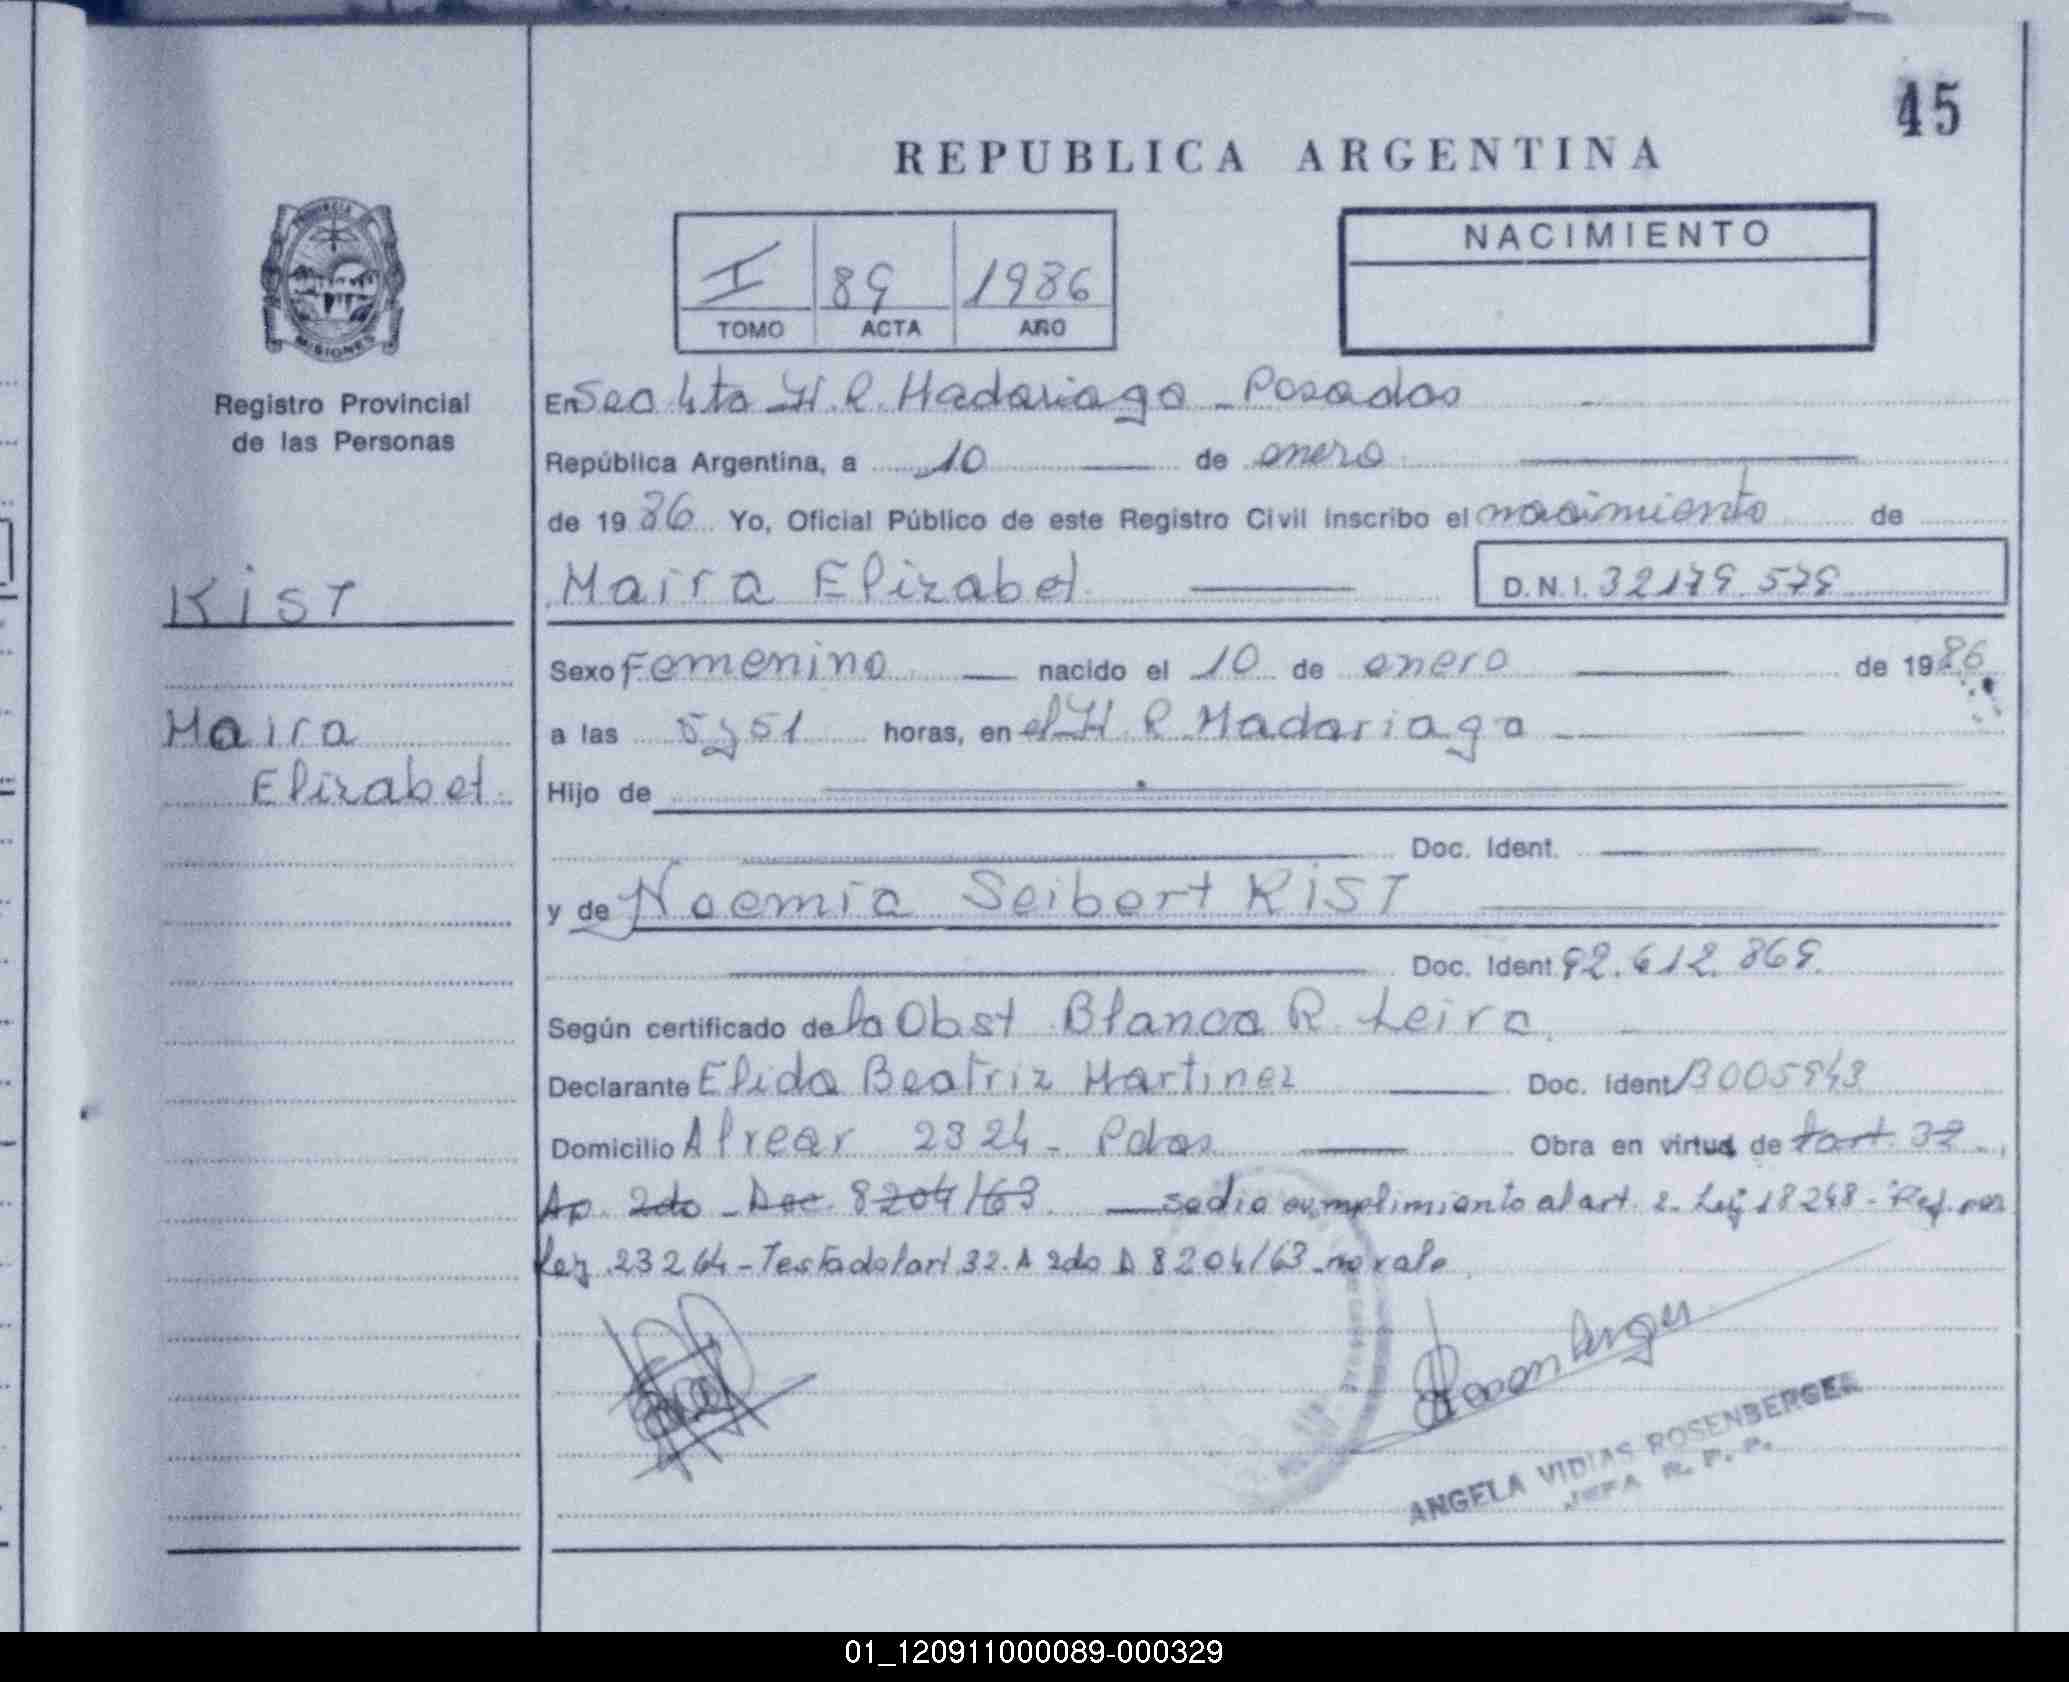 45
REPUBLICA ARGENTINA
I 89 1986
TOMO ACTA AÑO
NACIMIENTO
PROVINCIA
MISIONES
Registro Provincial
de las Personas
En Sec 4ta H. R. Madariaga - Posadas
República Argentina, a 10 de enero
de 1986 Yo, Oficial Público de este Registro Civil inscribo el nacimiento de
KiST
Maira Elizabet D.N.I. 32179.579
Sexo Femenino nacido el 10 de enero de 1986
Maira
a las 5y51 horas, en el H. R. Madariaga
Elizabet
Hijo de
Doc. Ident.
y de Noemia Seibert KiST
Doc. Ident 92.612.869.
Según certificado de la Obst Blanca R. Leira
Declarante Elida Beatriz Martinez Doc. Ident
Domicilio Alvear 2324 - Pdas Obra en virtud de l'art. 32
Ap. 2do - Dec. 8204/63 se dio cumplimiento al art. 2. Ley 18248 - Ref. por
Ley 23264 - Testado l'art 32. A 2do D 8204/63 - no vale
ANGELA VIDIAS ROSENBERGER
JEFA R. P. P.
01_120911000089-000329